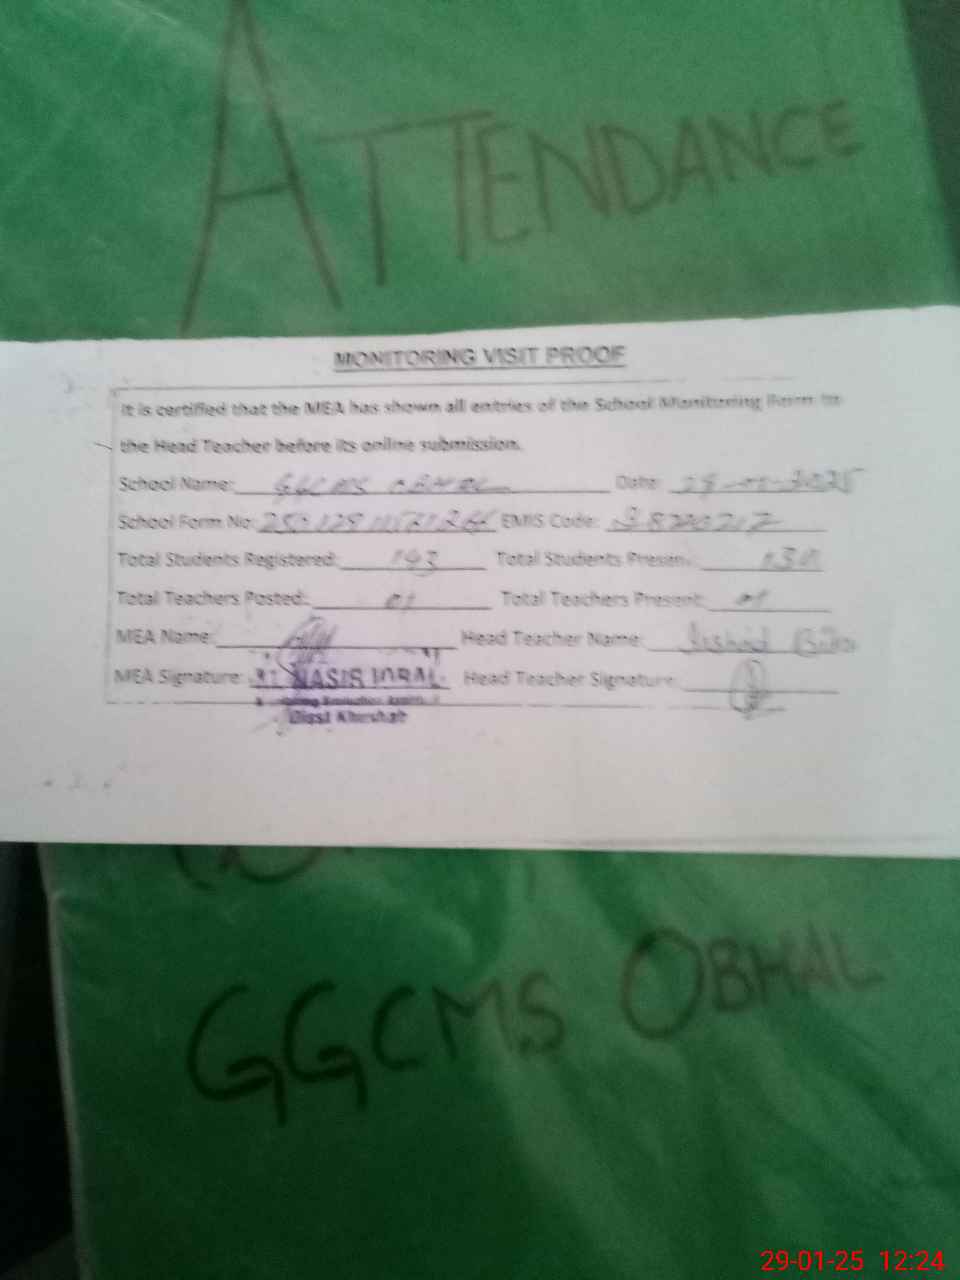 ATTENDANCE
MONITORING VISIT PROOF
It is certified that the MEA has shown all entries of the School Monitoring Form to
the Head Teacher before its online submission.
School Name: GGCMS OBHAL Date: 29-01-2025
School Form No: EMIS Code:
Total Students Registered: 193 Total Students Present: 130
Total Teachers Posted: 01 Total Teachers Present: 01
MEA Name: Head Teacher Name: Irshad
MEA Signature: NASIR IQBAL Head Teacher Signature:
Distt Khushab
GGCMS OBHAL
29-01-25 12:24